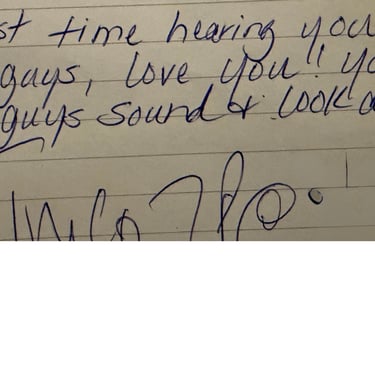 st time hearing you
guys, love you!! yo
guys sound & look